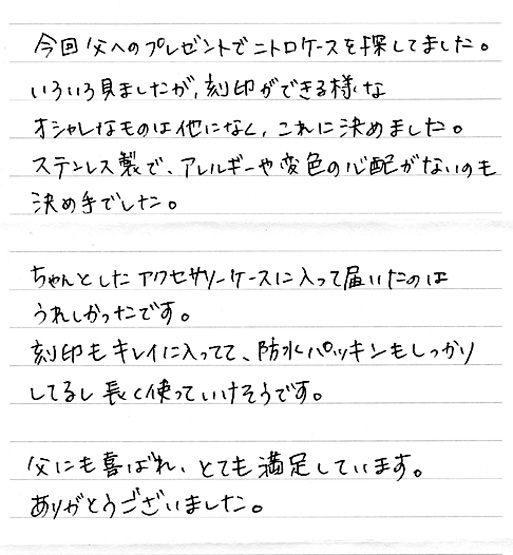 今回父へのプレゼントでニトロケースを探してました。
いろいろ見ましたが、刻印ができる様な
オシャレなものは他になく、これに決めました。
ステンレス製で、アレルギーや変色の心配がないのも
決め手でした。
ちゃんとしたアクセサリーケースに入って届いたのは
うれしかったです。
刻印もキレイに入ってて、防水パッキンもしっかり
してるし長く使っていけそうです。
父にも喜ばれ、とても満足しています。
ありがとうございました。